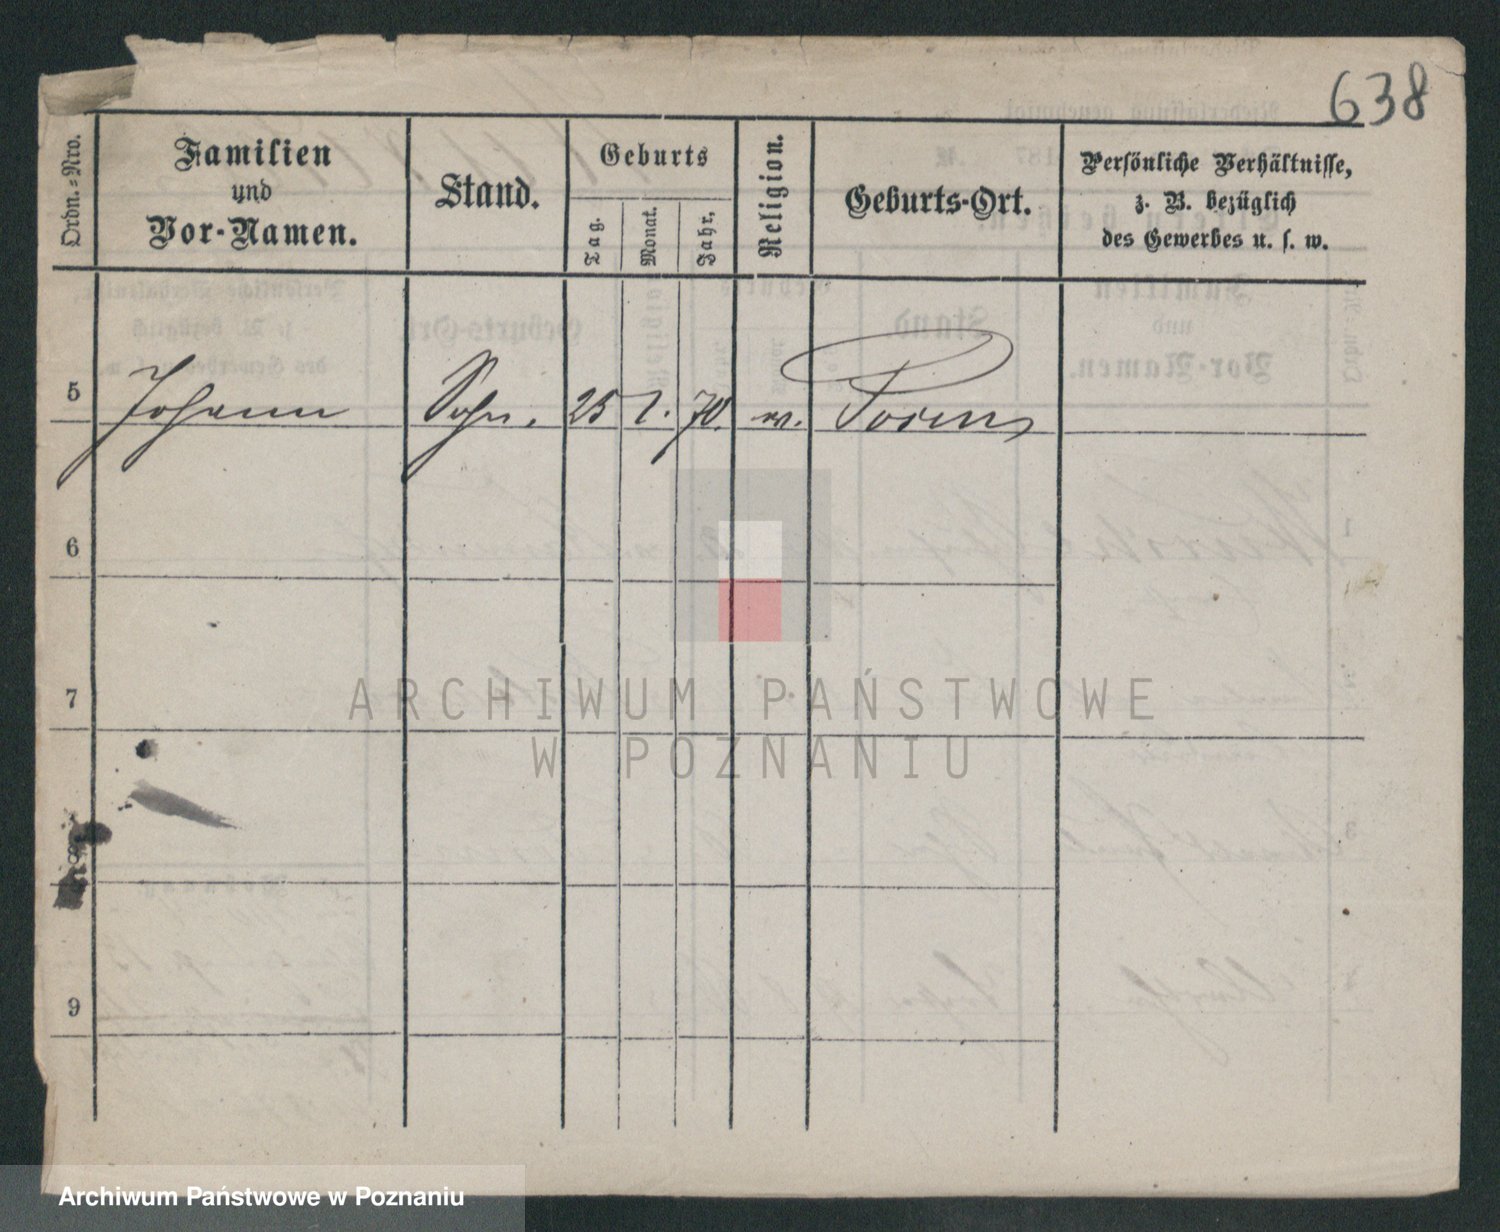 638
Ordn.-Nro.
Familien
und
Vor-Namen.
Stand.
Geburts
Tag.
Monat.
Jahr,
Religion.
Geburts-Ort.
Persönliche Verhältnisse,
z. B. bezüglich
des Gewerbes u. s. w.
5 Johann Sohn. 25 70. Posen
6
7
8
9
ARCHIWUM PAŃSTWOWE
W POZNANIU
Archiwum Państwowe w Poznaniu